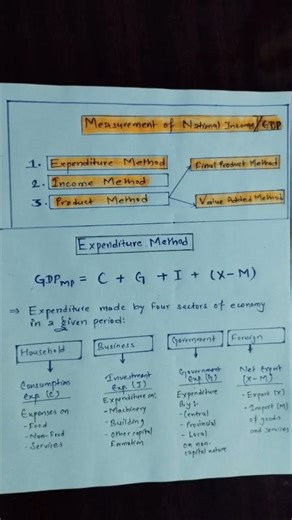 Measurement of National Income/GDP
1. Expenditure Method
2. Income Method
3. Product Method
Final Product Method
Value Added Method
Expenditure Method
GDPMP = C + G + I + (X-M)
⇒ Expenditure made by four sectors of economy
in a given period:
Household
Consumption
Exp. (C)
Expenses on
- Food
- Non-Food
- Services
Business
Investment
Exp. (I)
Expenditure on:
- Machinery
- Building
- Other capital
Formation
Government
Government
exp. (G)
Expenditure
By:
- Central
- Provincial
- Local
on non-
capital nature
Foreign
Net Export
(X-M)
- Export (X)
- Import (M)
of goods
and services